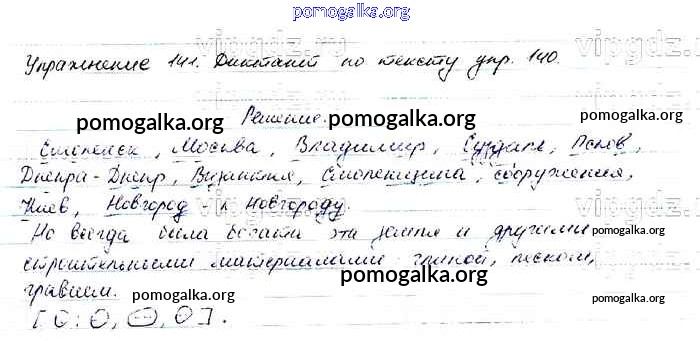 pomogalka.org
Упражнение 141. Диктант по тексту упр. 140.
vipgdz.ru
Решение.
pomogalka.org pomogalka.org
Смоленск, Москва, Владимир, Суздаль, Псков,
Днепра - Днепр, Византия, Смоленщина, сооружения,
Киев, Новгород - к Новгороду.
pomogalka.org pomogalka.org
Но всегда была богата эта земля и другими
pomogalka.org
строительными материалами: глиной, песком,
pomogalka.org
гравием.
pomogalka.org pomogalka.org pomogalka.org
[О: О, О, О].